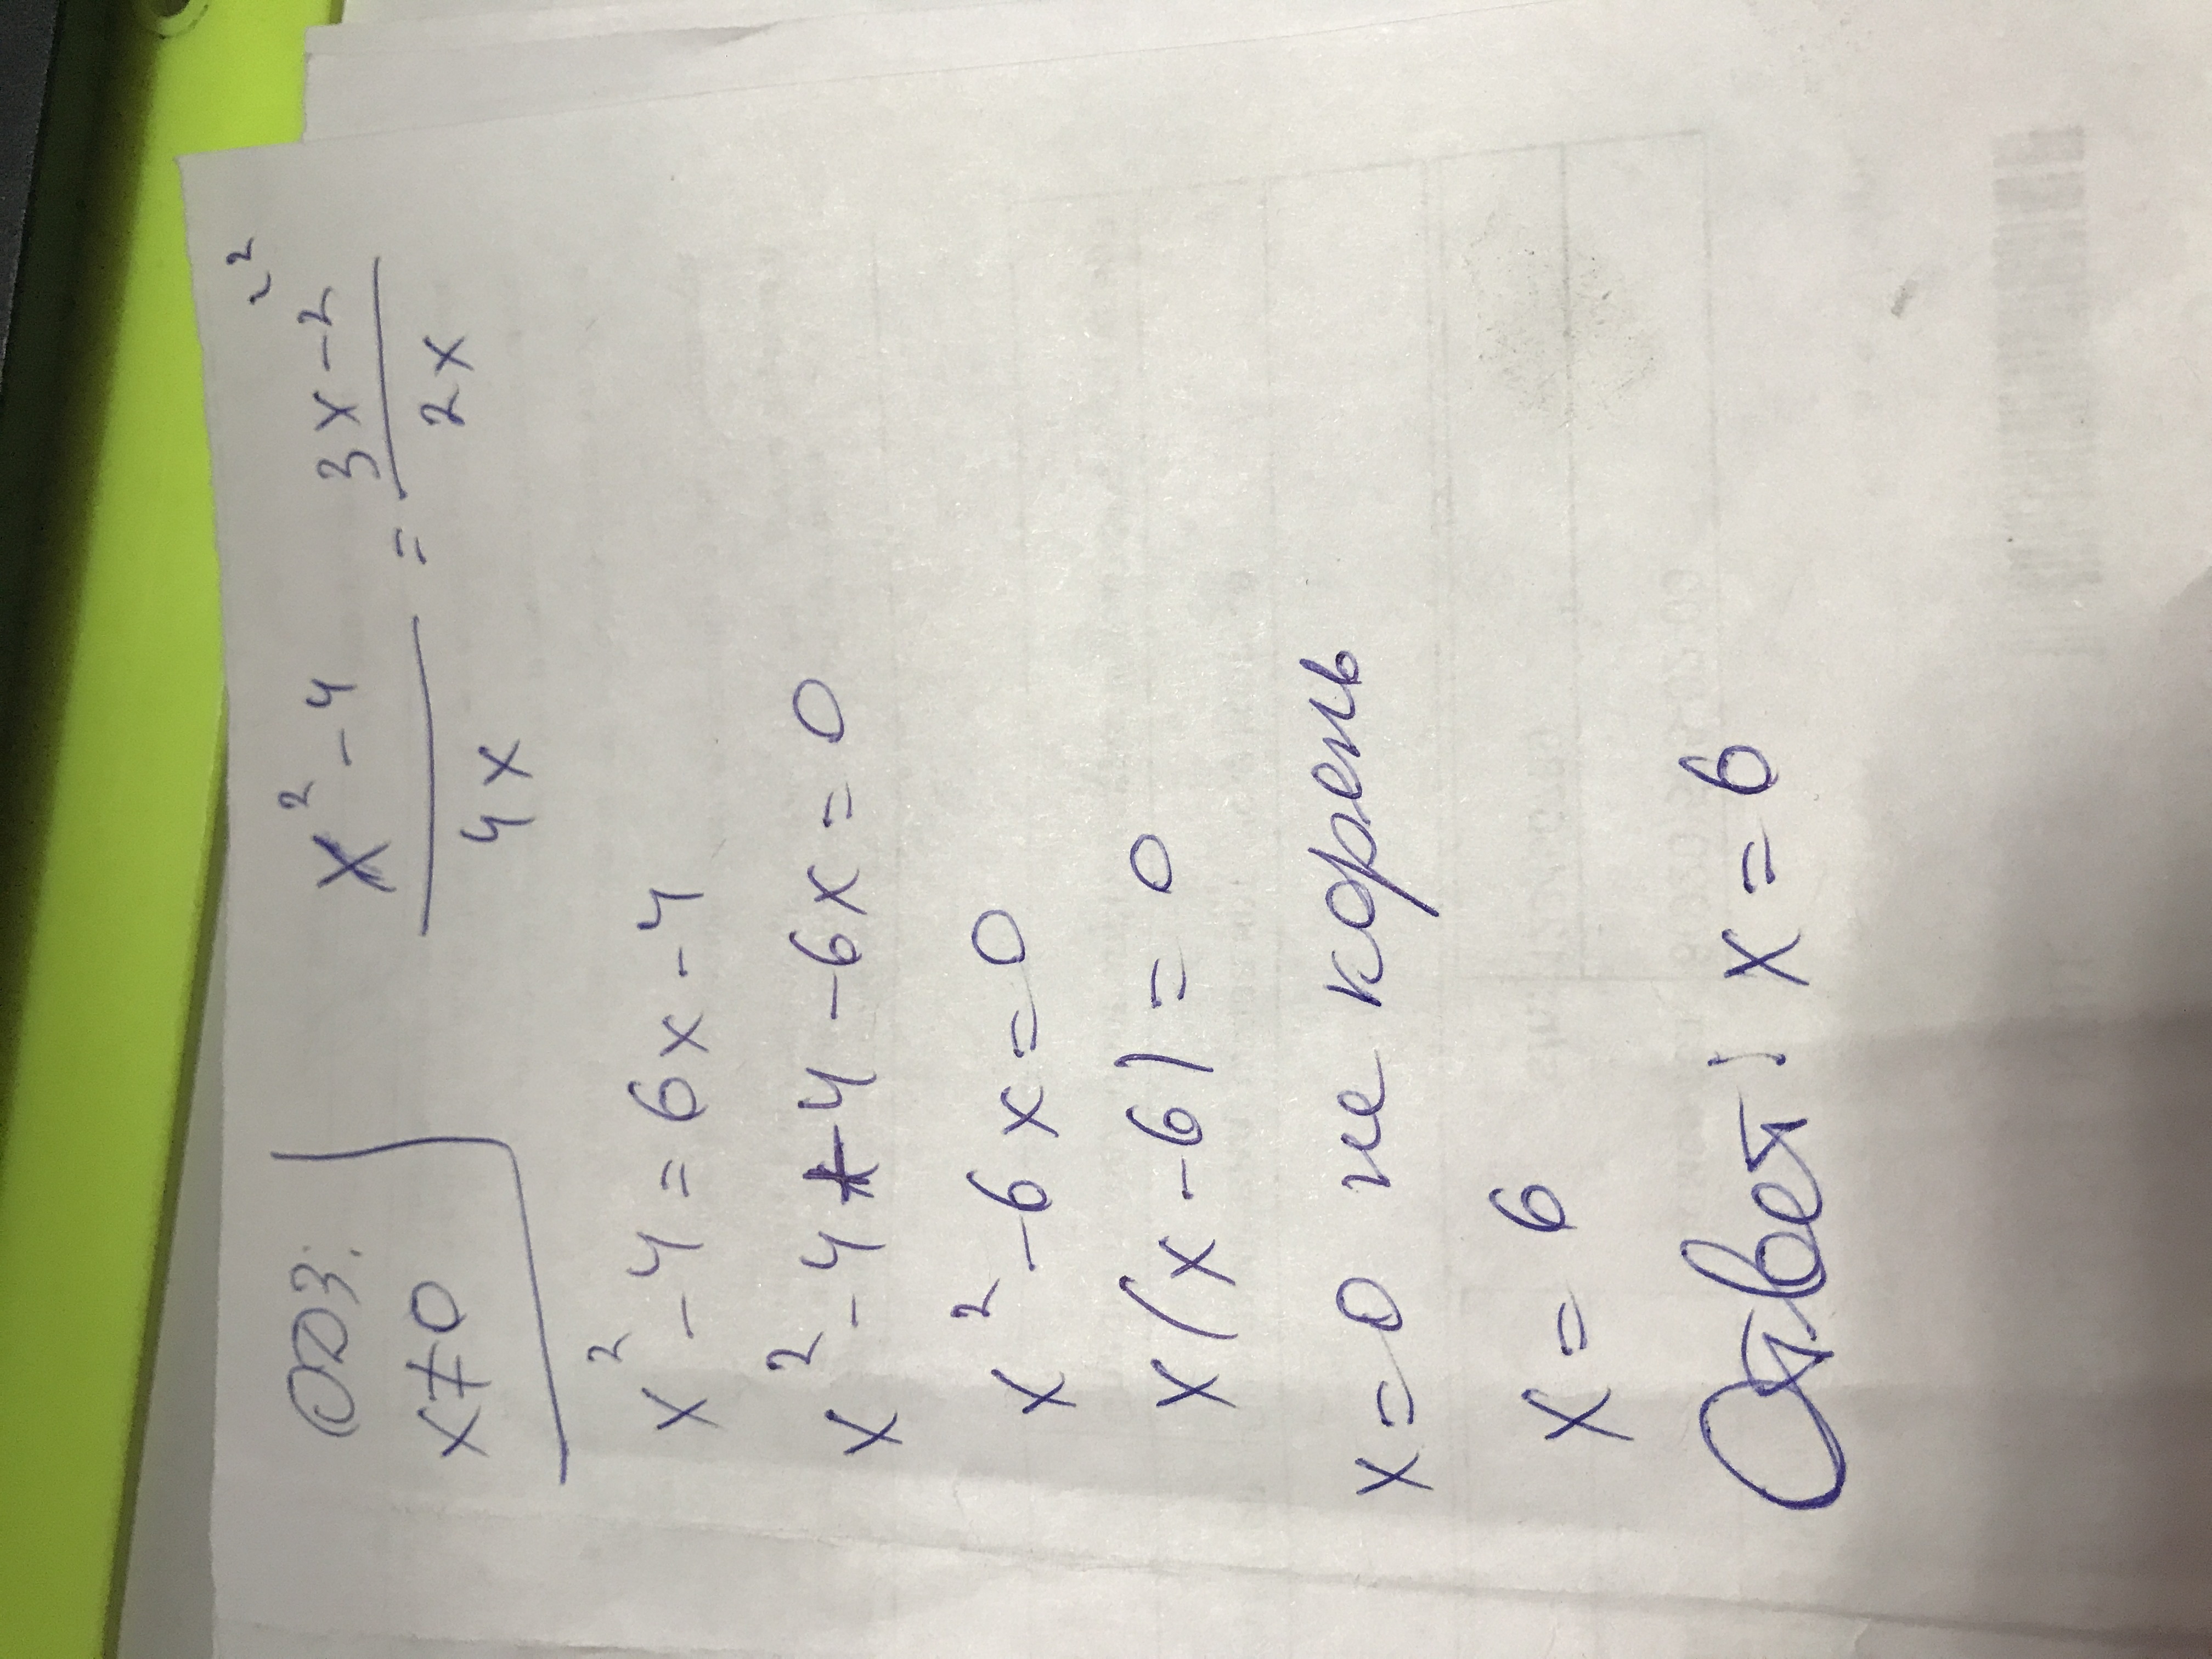 ОДЗ:
x≠0
x² - 4 / 4x = 3x - 2 \² / 2x
x² - 4 = 6x - 4
x² - 4 + 4 - 6x = 0
x² - 6x = 0
x(x - 6) = 0
x = 0 не корень
x = 6
Ответ: x = 6